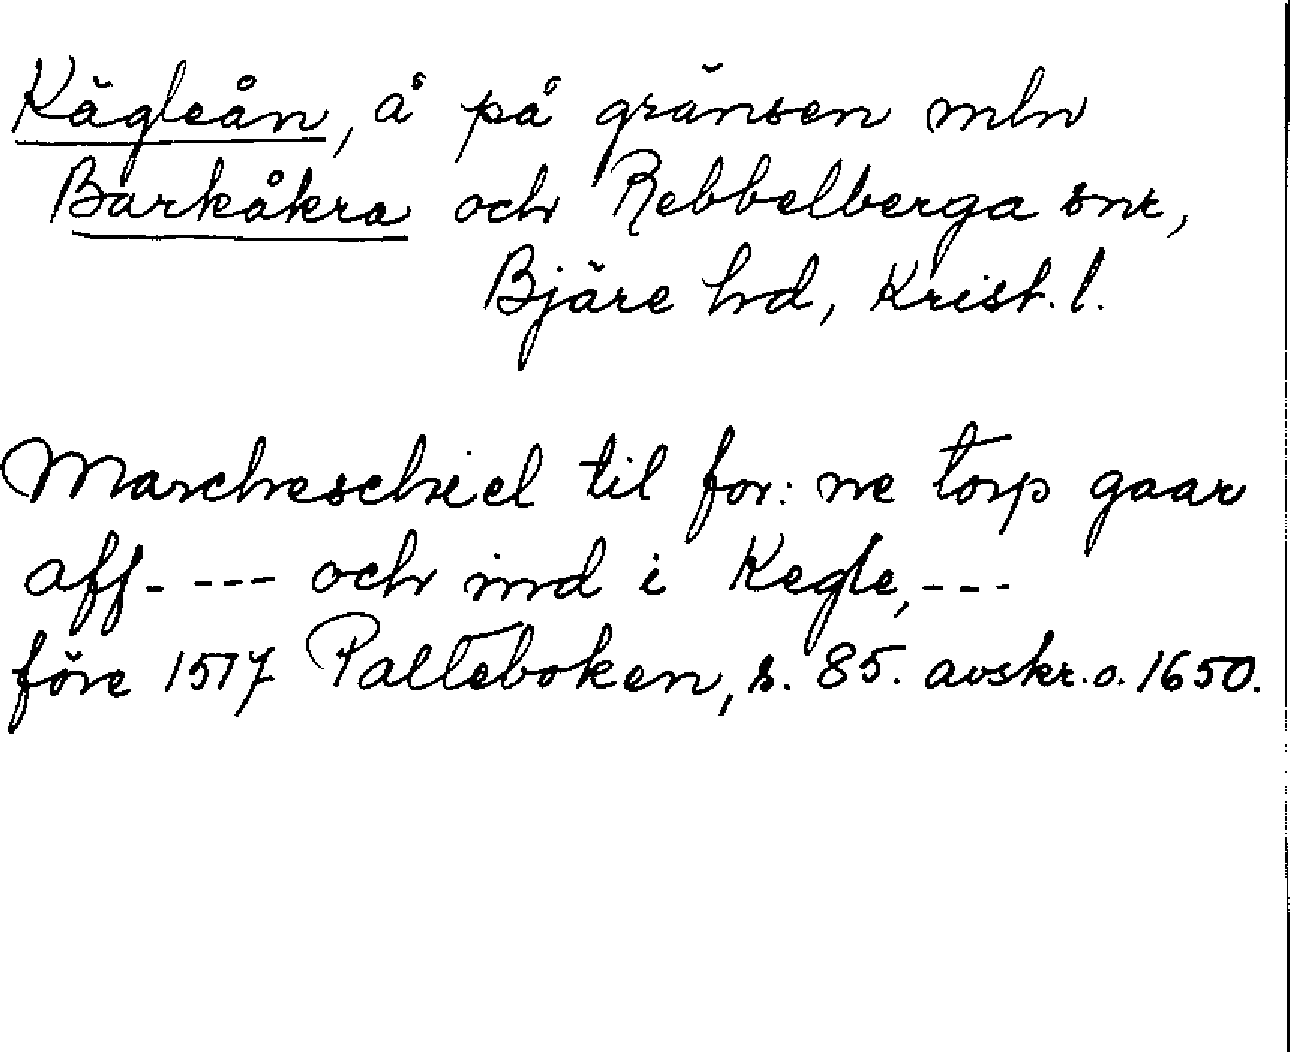 Kägleån, å på gränsen mln
Barkåkra och Rebbelberga snr,
Bjäre hd, Krist. l.
Marcheschiel til for: ne torp gaar
aff- --- och ind i Kegle, ---
före 1517 Palteboken, s. 85. avskr. o. 1650.